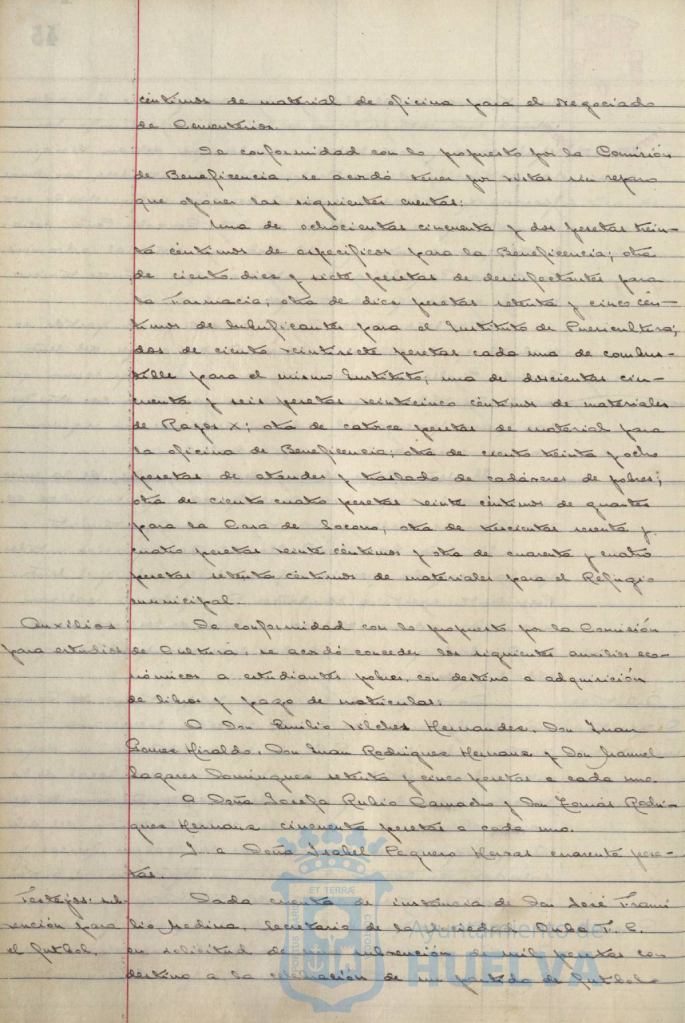 céntimos de material de oficina para el Negociado
de Cementerios.
De conformidad con lo propuesto por la Comisión
de Beneficencia, se acordó tener por vistas sin reparo
que oponer las siguientes cuentas:
Una de ochocientas cincuenta y dos pesetas trein-
ta céntimos de específicos para la Beneficencia; otra
de ciento diez y siete pesetas de desinfectantes para
la Farmacia; otra de diez pesetas setenta y cinco cén-
timos de lubrificantes para el Instituto de Puericultura;
dos de ciento veintisiete pesetas cada una de combus-
tible para el mismo Instituto; una de doscientas cin-
cuenta y seis pesetas veinticinco céntimos de materiales
de Rayos X; otra de catorce pesetas de material para
la oficina de Beneficencia; otra de ciento treinta y ocho
pesetas de ataudes y traslado de cadáveres de pobres;
otra de ciento cuatro pesetas veinte céntimos de guantes
para la Casa de Socorro; otra de trescientas sesenta y
cuatro pesetas veinte céntimos y otra de cuarenta y cuatro
pesetas setenta céntimos de materiales para el Refugio
municipal.
Auxilios
para estudios
De conformidad con lo propuesto por la Comisión
de Cultura, se acordó conceder los siguientes auxilios eco-
nómicos a estudiantes pobres, con destino a adquisición
de libros y pago de matrículas:
A Don Emilio Vilches Hernandez, Don Juan
Gomez Hiraldo, Don Juan Rodriguez Hermana y Don Manuel
Lagares Dominguez setenta y cinco pesetas a cada uno.
A Doña Josefa Rubio Camacho y Don Tomás Rodri-
guez Hermana cincuenta pesetas a cada uno.
Y a Doña Isabel Peguero Heras cuarenta pese-
tas.
Festejos: sub-
vención para
el futbol.
Dada cuenta de instancia de Don José
Medina, Secretario de la Sociedad Onuba F. C.
en solicitud de subvención de mil pesetas con
destino a la celebración de un partido de futbol
PORTUS MARIS ET TERRÆ CUSTODIA
Ayuntamiento de
HUELVA